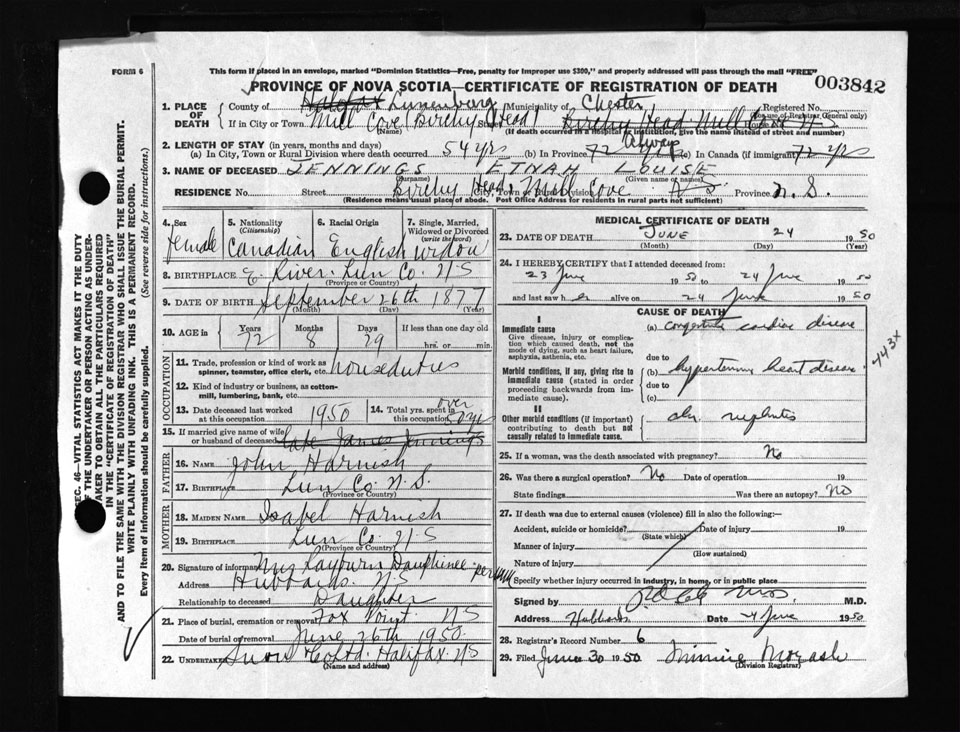 FORM 6
This form if placed in an envelope, marked "Dominion Statistics—Free, penalty for improper use $300," and properly addressed will pass through the mail "FREE"
PROVINCE OF NOVA SCOTIA—CERTIFICATE OF REGISTRATION OF DEATH
003842
1. PLACE OF DEATH
County of Halifax Lunenburg Municipality of Chester Registered No.
(For use of Registrar General only)
If in City or Town Mill Cove (Birchy Head) Street Birchy Head Mill Cove N.S. House No.
(Name) (If death occurred in a hospital or institution, give the name instead of street and number)
2. LENGTH OF STAY (in years, months and days)
Always
(a) In City, Town or Rural Division where death occurred 54 yrs (b) In Province 72 yrs (c) In Canada (if immigrant) 72 yrs
3. NAME OF DECEASED JENNINGS ETNAH LOUISE
(Surname) (Given name or names)
RESIDENCE No. Street Birchy Head, Mill Cove N.S. City, Town or Rural Division Province N.S.
(Residence means usual place of abode. Post Office Address for residents in rural parts not sufficient)
4. Sex female
5. Nationality (Citizenship) Canadian
6. Racial Origin English
7. Single, Married, Widowed or Divorced (write the word) widow
8. BIRTHPLACE E. River. Lun Co. N.S
(Province or Country)
9. DATE OF BIRTH September 26th 1877
(Month) (Day) (Year)
10. AGE in Years 72 Months 8 Days 29 If less than one day old hrs. or min.
OCCUPATION
11. Trade, profession or kind of work as spinner, teamster, office clerk, etc. houseduties
12. Kind of industry or business, as cotton-mill, lumbering, bank, etc.
13. Date deceased last worked at this occupation 1950
14. Total yrs. spent in this occupation over 50 yrs
15. If married give name of wife or husband of deceased Late James Jennings
FATHER
16. NAME John Harnish
17. BIRTHPLACE Lun Co. N.S.
(Province or Country)
MOTHER
18. MAIDEN NAME Isabel Harnish
19. BIRTHPLACE Lun Co. N.S
(Province or Country)
20. Signature of informant Mrs Rayburn Dauphinee
Address Hubbards. N.S
Relationship to deceased Daughter
21. Place of burial, cremation or removal Fox Point. N.S
Date of burial or removal June 26th 1950.
22. Undertaker Snow Co Ltd. Halifax N.S
(Name and address)
MEDICAL CERTIFICATE OF DEATH
23. DATE OF DEATH JUNE 24 1950
(Month) (Day) (Year)
24. I HEREBY CERTIFY that I attended deceased from:
23 June 1950 to 24 June 1950
and last saw her alive on 24 June 1950
CAUSE OF DEATH
I
Immediate cause
Give disease, injury or complication which caused death, not the mode of dying, such as heart failure, asphyxia, asthenia, etc.
(a) congestive cardiac disease
due to
Morbid conditions, if any, giving rise to immediate cause (stated in order proceeding backwards from immediate cause).
(b) hypertensive heart disease
due to
(c)
443x
II
Other morbid conditions (if important) contributing to death but not causally related to immediate cause.
chr nephritis
25. If a woman, was the death associated with pregnancy? No
26. Was there surgical operation? No Date of operation 19
State findings Was there an autopsy? No
27. If death was due to external causes (violence) fill in also the following:—
Accident, suicide or homicide? Date of injury 19
(State which)
Manner of injury
(How sustained)
Nature of injury
Specify whether injury occurred in industry, in home, or in public place
Signed by M.D.
Address Hubbards Date 24 June 1950
28. Registrar's Record Number 6
29. Filed June 30 1950 Minnie Morash
(Division Registrar)
SEC. 46—VITAL STATISTICS ACT MAKES IT THE DUTY OF THE UNDERTAKER OR PERSON ACTING AS UNDERTAKER TO OBTAIN ALL THE PARTICULARS REQUIRED IN THE "CERTIFICATE OF REGISTRATION OF DEATH" AND TO FILE THE SAME WITH THE DIVISION REGISTRAR WHO SHALL ISSUE THE BURIAL PERMIT.
WRITE PLAINLY WITH UNFADING INK. THIS IS A PERMANENT RECORD.
Every item of information should be carefully supplied. (See reverse side for instructions.)